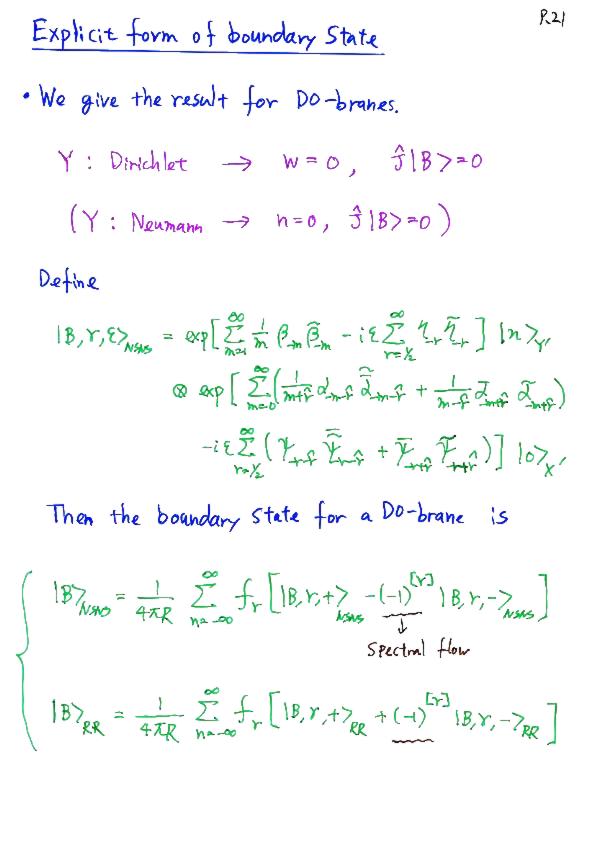 P.21
Explicit form of boundary State
• We give the result for D0-branes.
Y : Dirichlet → w = 0 , Ĵ|B> = 0
(Y : Neumann → n = 0, Ĵ|B> = 0)
Define
|B, γ, ε>_NSNS = exp[ Σ_{m=1}^∞ 1/m β_{-m} β̃_{-m} - iε Σ_{r=1/2}^∞ η_{-r} η̃_{-r} ] |n>_{Y'}
⊗ exp[ Σ_{m=0}^∞ ( 1/(m+γ̂) α_{-m-γ̂} \tilde{\bar{α}}_{-m-γ̂} + 1/(m-γ̂) ᾱ_{-m+γ̂} α̃_{-m+γ̂} )
-iε Σ_{r=1/2}^∞ ( ψ_{-r-γ̂} \tilde{\bar{ψ}}_{-r-γ̂} + ψ̄_{-r+γ̂} ψ̃_{-r+γ̂} ) ] |0>_{X'}
Then the boundary state for a D0-brane is
|B>_NSNS = 1/(4πR) Σ_{n=-∞}^∞ f_γ [ |B, γ, +>_NSNS - (-1)^{[γ]} |B, γ, ->_NSNS ]
↓
Spectral flow
|B>_RR = 1/(4πR) Σ_{n=-∞}^∞ f_γ [ |B, γ, +>_RR + (-1)^{[γ]} |B, γ, ->_RR ]